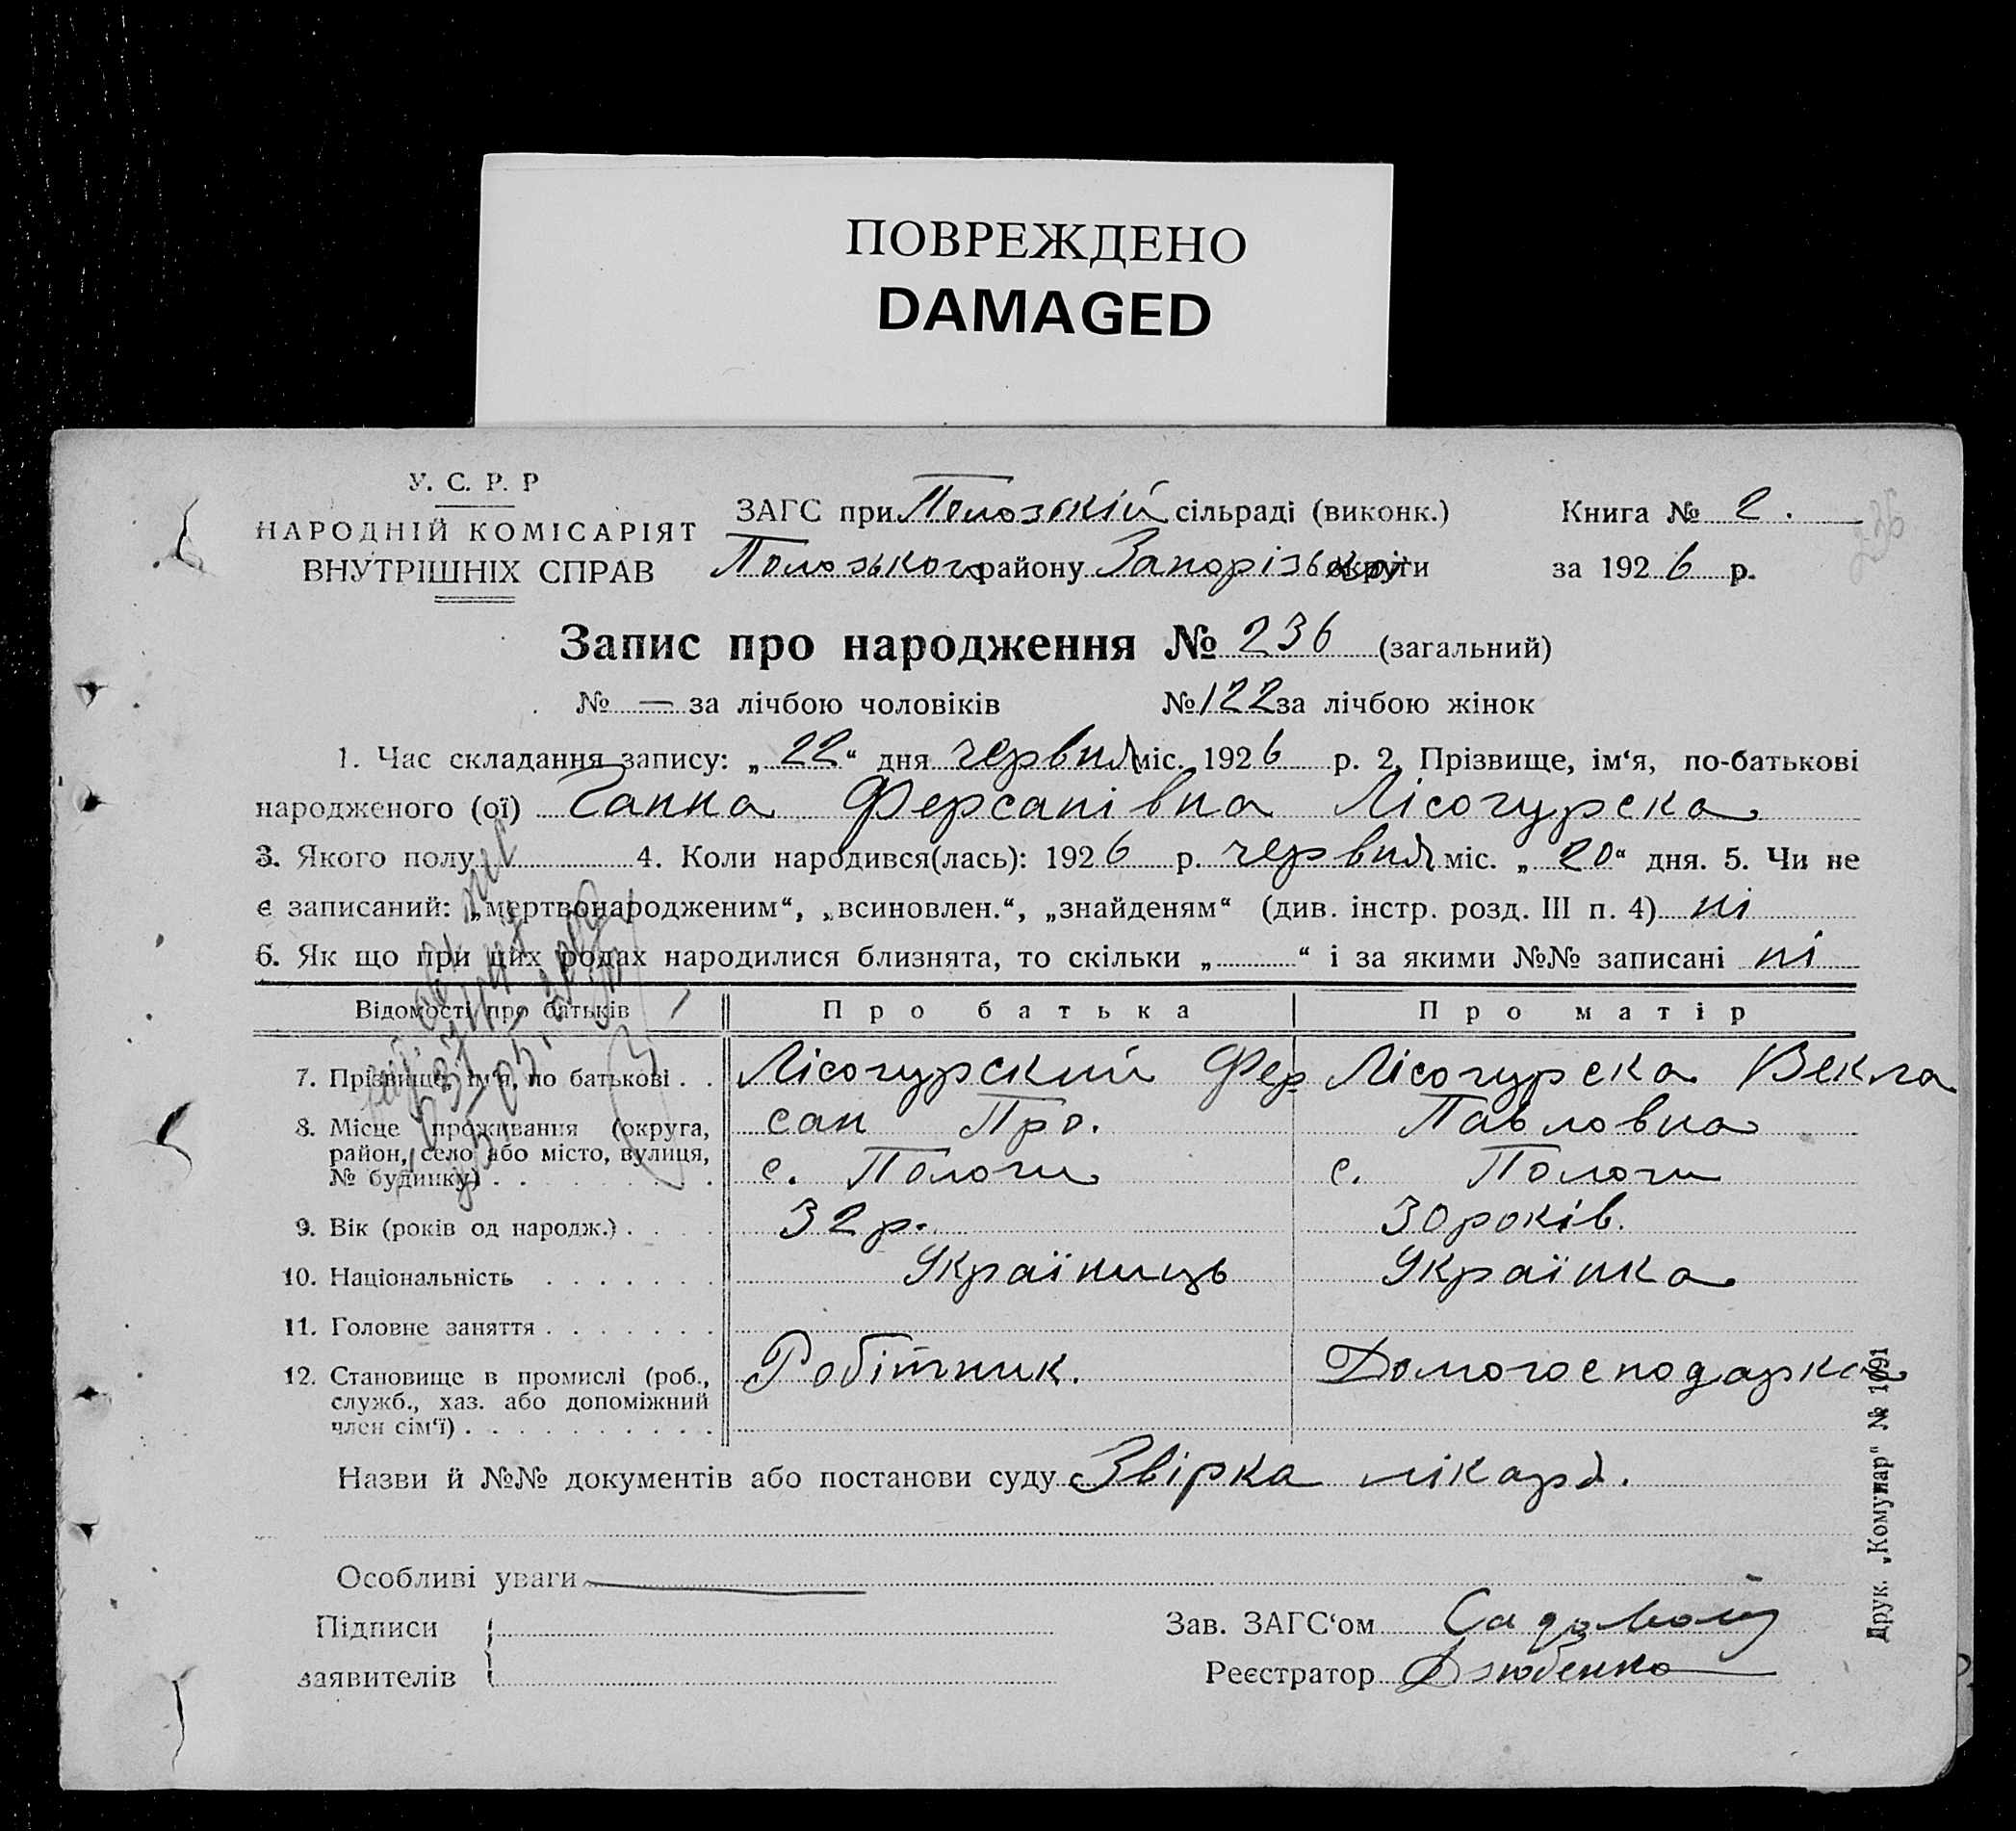 ПОВРЕЖДЕНО
DAMAGED
У. С. Р. Р
НАРОДНІЙ КОМІСАРІЯТ
ВНУТРІШНІХ СПРАВ
ЗАГС при Пологській сільраді (виконк.)
Пологського району Запорізької округи
Книга № 2.
за 1926 р.
Запис про народження № 236 (загальний)
№ — за лічбою чоловіків № 122 за лічбою жінок
1. Час складання запису: „22“ дня червня міс. 1926 р. 2. Прізвище, ім‘я, по-батькові
народженого (ої) Ганна Ферсанівна Лісогурска
3. Якого полу 4. Коли народився(лась): 1926 р. червня міс. „20“ дня. 5. Чи не
є записаний: „мертвонародженим“, „всиновлен.“, „знайденям“ (див. інстр. розд. III п. 4) ні
6. Як що при цих родах народилися близнята, то скільки „ “ і за якими №№ записані ні
Відомості про батьків Про батька Про матір
7. Прізвище, ім‘я, по батькові . . Лісогурский Фер Лісогурска Векла
сан Про. Павловна
8. Місце проживання (округа,
район, село або місто, вулиця,
№ будинку) . . . . . . . . с. Пологи с. Пологи
9. Вік (років од народж.) . . . . 32 р. 30 років.
10. Національність . . . . . . . Українець Українка
11. Головне заняття . . . . . . .
12. Становище в промислі (роб.,
служб., хаз. або допоміжний
член сім‘ї) . . . . . . . . . . Робітник. Домогосподарка
Назви й №№ документів або постанови суду Звірка лікаря.
Особливі уваги
Підписи
заявителів
Зав. ЗАГС‘ом
Реєстратор Дзюбенко
Друк. „Комунар“ № 1091